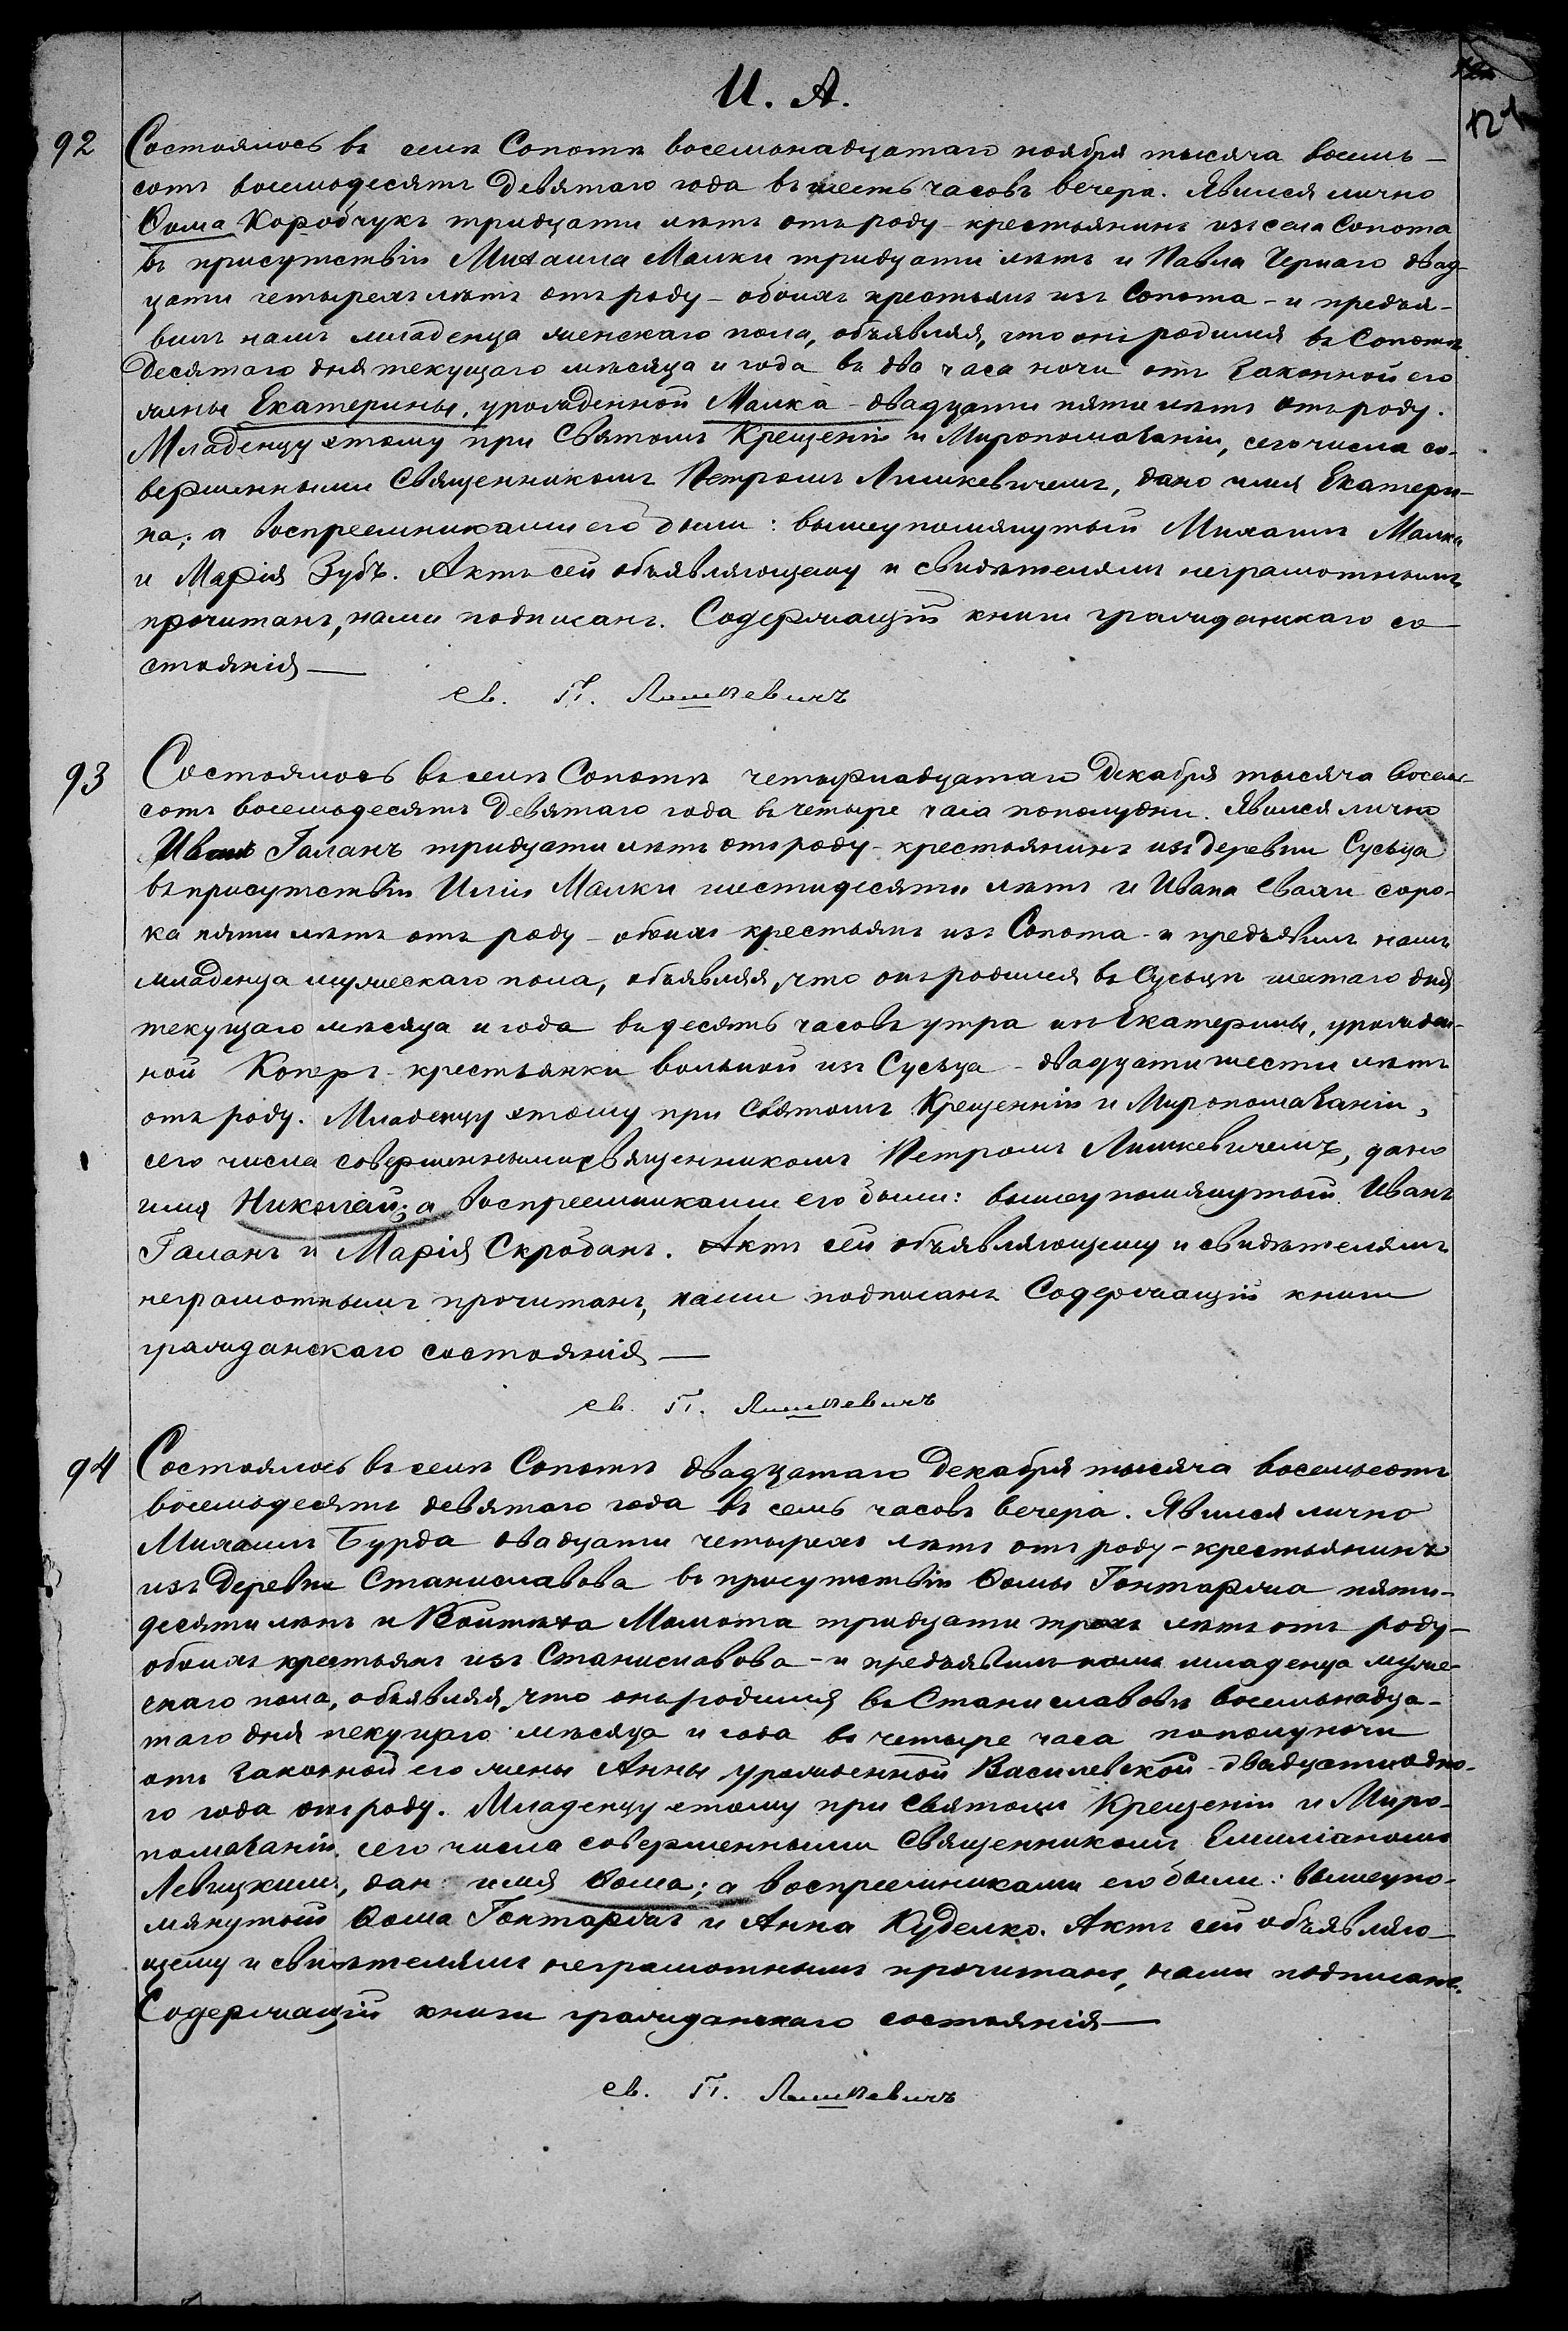 И. А.
121
92 Состоялось въ селѣ Сопотѣ восемьнадцатаго ноября тысяча восемь-
сотъ восемьдесятъ девятаго года въ шесть часовъ вечера. Явился лично
Ѳома Коробчукъ тридцати лѣтъ отъ роду - крестьянинъ изъ села Сопота
въ присутствіи Михаила Малки тридцати лѣтъ и Павла Чернаго двад-
цати четырехъ лѣтъ отъ роду - обоихъ крестьянъ изъ Сопота - и предъя-
вилъ намъ младенца женскаго пола, объявляя, что онъ родился въ Сопотѣ
десятаго дня текущаго мѣсяца и года въ два часа ночи отъ законной его
жены Екатерины, урожденной Малка - двадцати пяти лѣтъ отъ роду.
Младенцу этому при Святомъ Крещеніи и Миропомазаніи, сего числа со-
вершенными Священникомъ Петромъ Лишкевичемъ, дано имя Екатери-
на; а воспреемниками его были: вышеупомянутый Михаилъ Малка
и Марія Зубъ. Актъ сей объявляющему и свидѣтелямъ неграмотнымъ
прочитанъ, нами подписанъ. Содержащій книги гражданскаго со-
стоянія —
св. П. Лишкевичъ
93 Состоялось въ селѣ Сопотѣ четырнадцатаго Декабря тысяча восемь-
сотъ восемьдесятъ девятаго года въ четыре часа пополудни. Явился лично
Иванъ Галанъ тридцати лѣтъ отъ роду - крестьянинъ изъ деревни Сусьца
въ присутствіи Иліи Малки шестидесяти лѣтъ и Ивана Свали соро-
ка пяти лѣтъ отъ роду - обоихъ крестьянъ изъ Сопота - и предъявилъ намъ
младенца мужескаго пола, объявляя, что онъ родился въ Сусьцѣ шестаго дня
текущаго мѣсяца и года въ десять часовъ утра отъ Екатерины, урожден-
ной Коперъ - крестьянки вольной изъ Сусьца - двадцати шести лѣтъ
отъ роду. Младенцу этому при Святомъ Крещеніи и Миропомазаніи,
сего числа совершенными священникомъ Петромъ Лишкевичемъ, дано
имя Николай; а воспреемниками его были: вышеупомянутый Иванъ
Галанъ и Марія Скробанъ. Актъ сей объявляющему и свидѣтелямъ
неграмотнымъ прочитанъ, нами подписанъ Содержащій книги
гражданскаго состоянія —
св. П. Лишкевичъ
94 Состоялось въ селѣ Сопотѣ двадцатаго Декабря тысяча восемьсотъ
восемьдесятъ девятаго года въ семь часовъ вечера. Явился лично
Михаилъ Бурда двадцати четырехъ лѣтъ отъ роду - крестьянинъ
изъ деревни Станиславова въ присутствіи Ѳомы Гонтаржа пяти-
десяти лѣтъ и Войтѣха Мамота тридцати трехъ лѣтъ отъ роду -
обоихъ крестьянъ изъ Станиславова - и предъявилъ намъ младенца муже-
скаго пола, объявляя, что онъ родился въ Станиславовѣ восемьнадца-
таго дня текущаго мѣсяца и года въ четыре часа пополуночи
отъ законной его жены Анны урожденной Василевской - двадцати одно-
го года отъ роду. Младенцу этому при Святомъ Крещеніи и Миро-
помазаніи, сего числа совершенными Священникомъ Емиліаномъ
Левицкимъ, дано имя Ѳома; а воспреемниками его были: вышеупо-
мянутый Ѳома Гонтаржъ и Анна Куделко. Актъ сей объявляю-
щему и свидѣтелямъ неграмотнымъ прочитанъ, нами подписанъ.
Содержащій книги гражданскаго состоянія —
св. П. Лишкевичъ